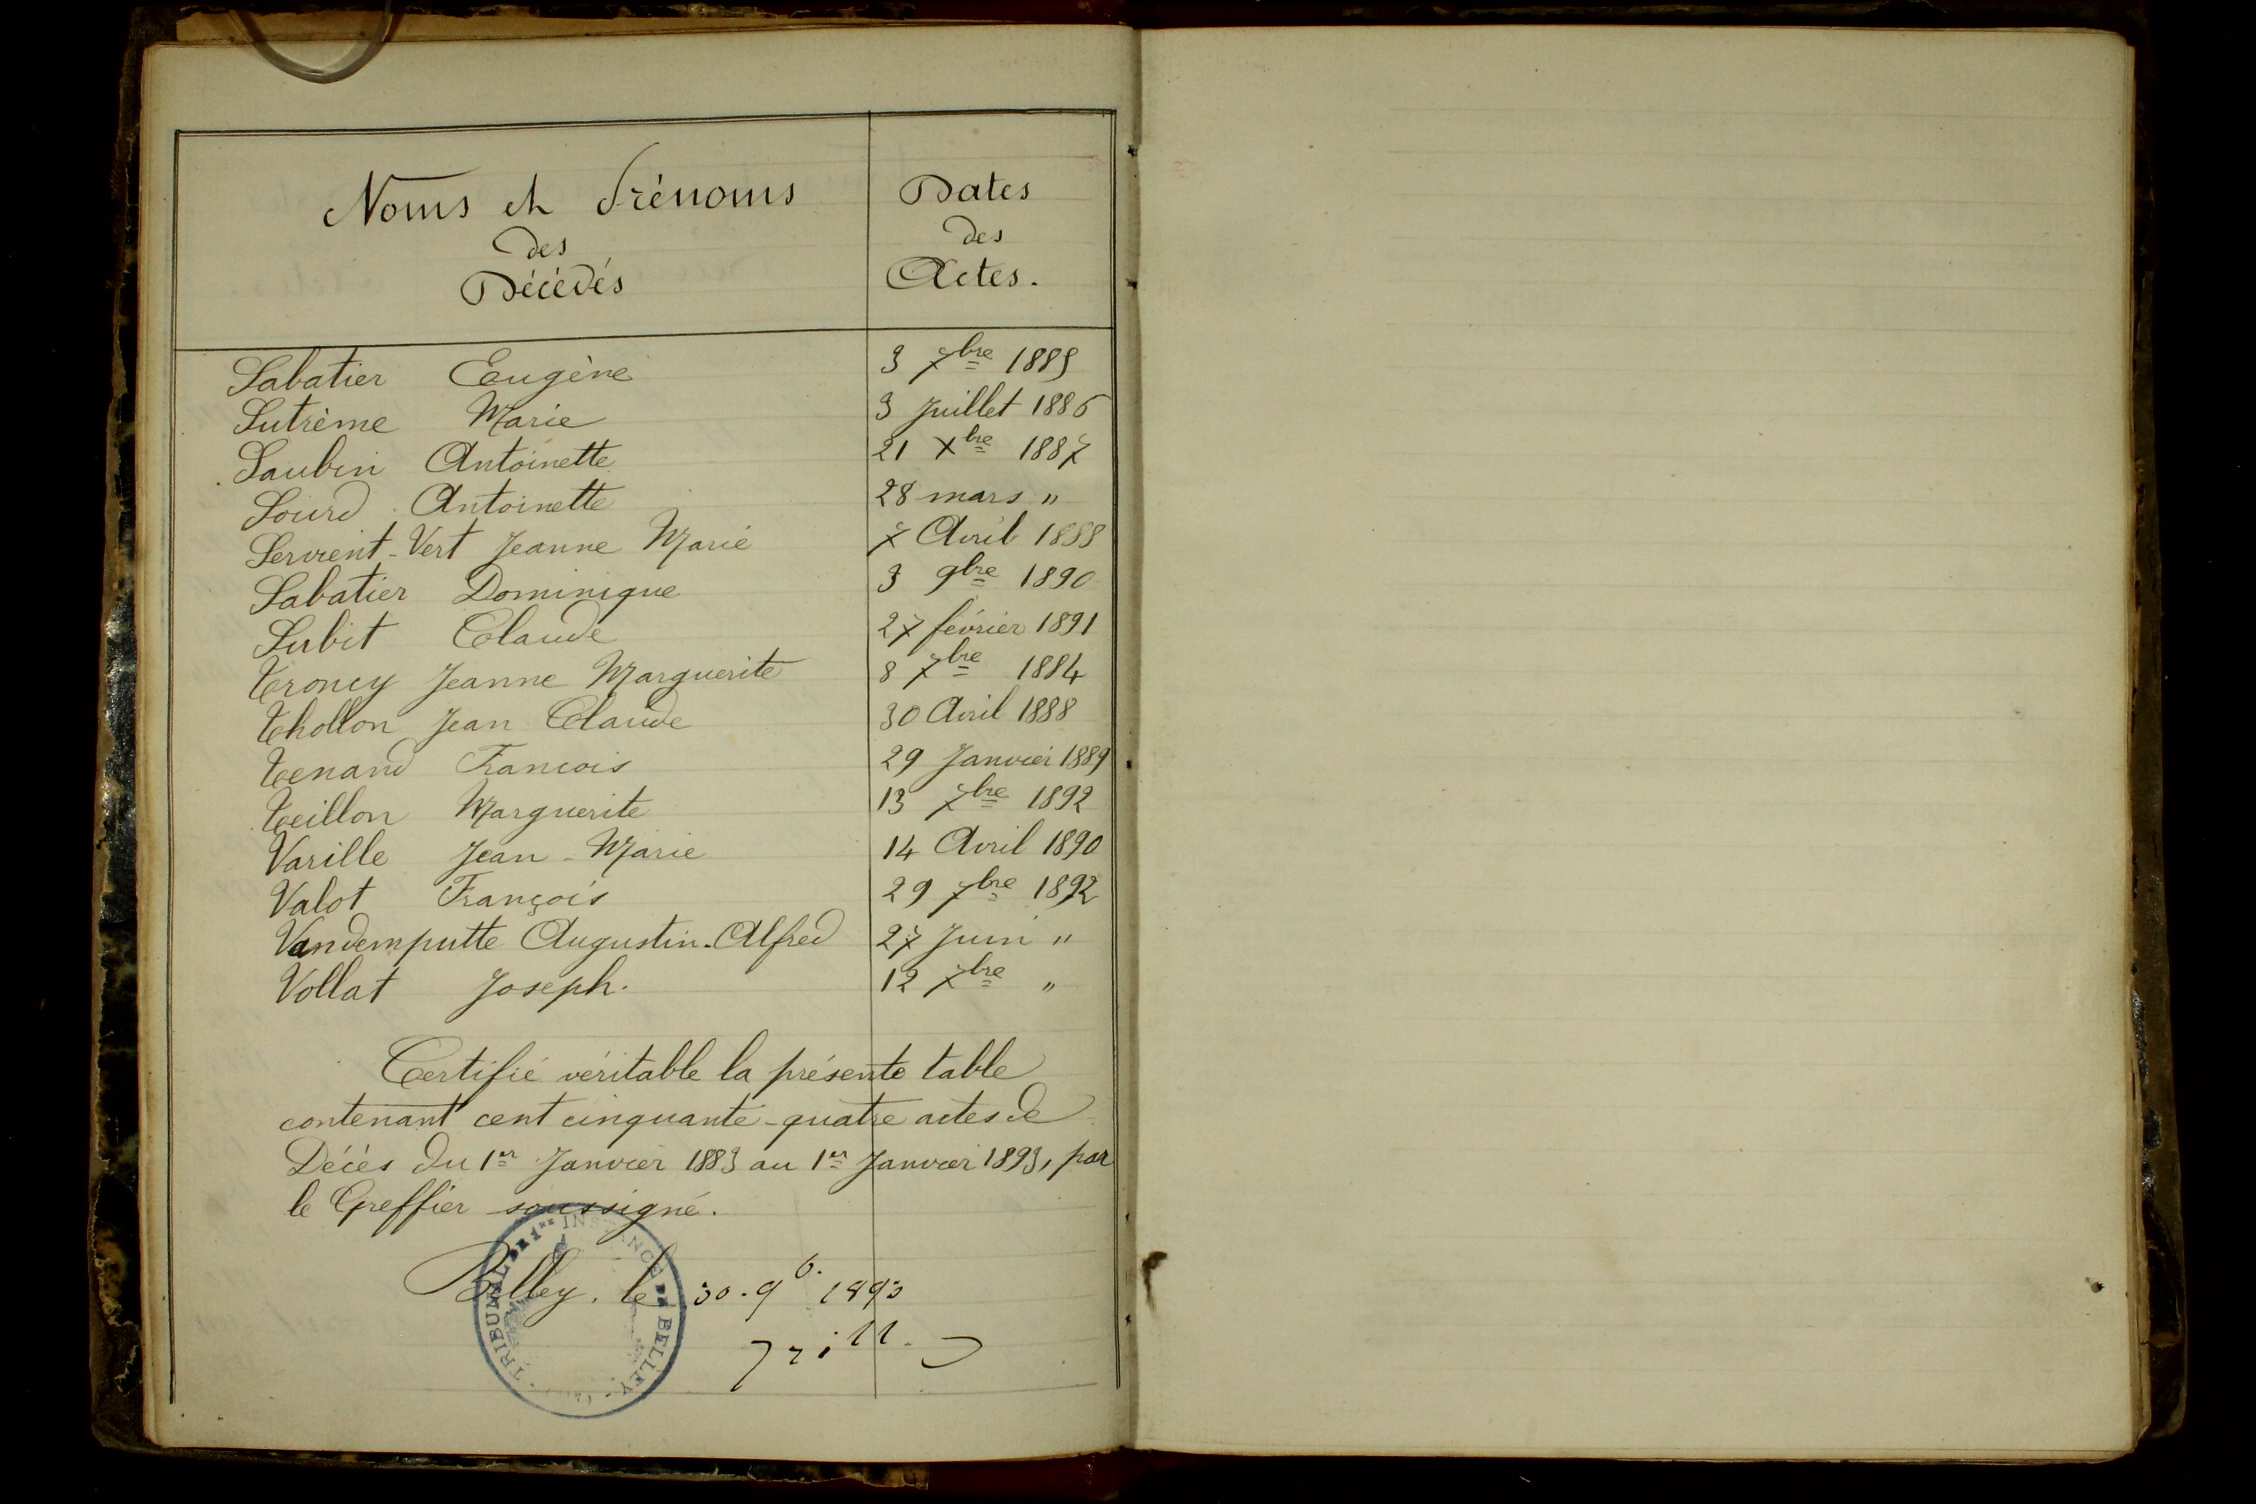 Noms et Prénoms
des
Décédés
Dates
des
Actes.
Sabatier Eugène 3 7bre 1885
Sutrème Marie 3 Juillet 1886
Saubin Antoinette 21 Xbre 1887
Sourd Antoinette 28 mars "
Servient-Vert Jeanne Marie 7 Avril 1888
Sabatier Dominique 3 9bre 1890
Subit Claude 27 février 1891
Troncy Jeanne Marguerite 8 7bre 1884
Thollon Jean Claude 30 Avril 1888
Tenand Francois 29 Janvier 1889
Teillon Marguerite 13 7bre 1892
Varille Jean-Marie 14 Avril 1890
Valot François 29 7bre 1892
Vandemputte Augustin-Alfred 27 Juin "
Vollat Joseph. 12 7bre "
Certifié véritable la présente table
contenant cent cinquante-quatre actes de
Décès du 1er Janvier 1883 au 1er Janvier 1893, par
le Greffier soussigné.
Belley, le 30. 9b. 1893
TRIBUNAL DE 1RE INSTANCE DE BELLEY